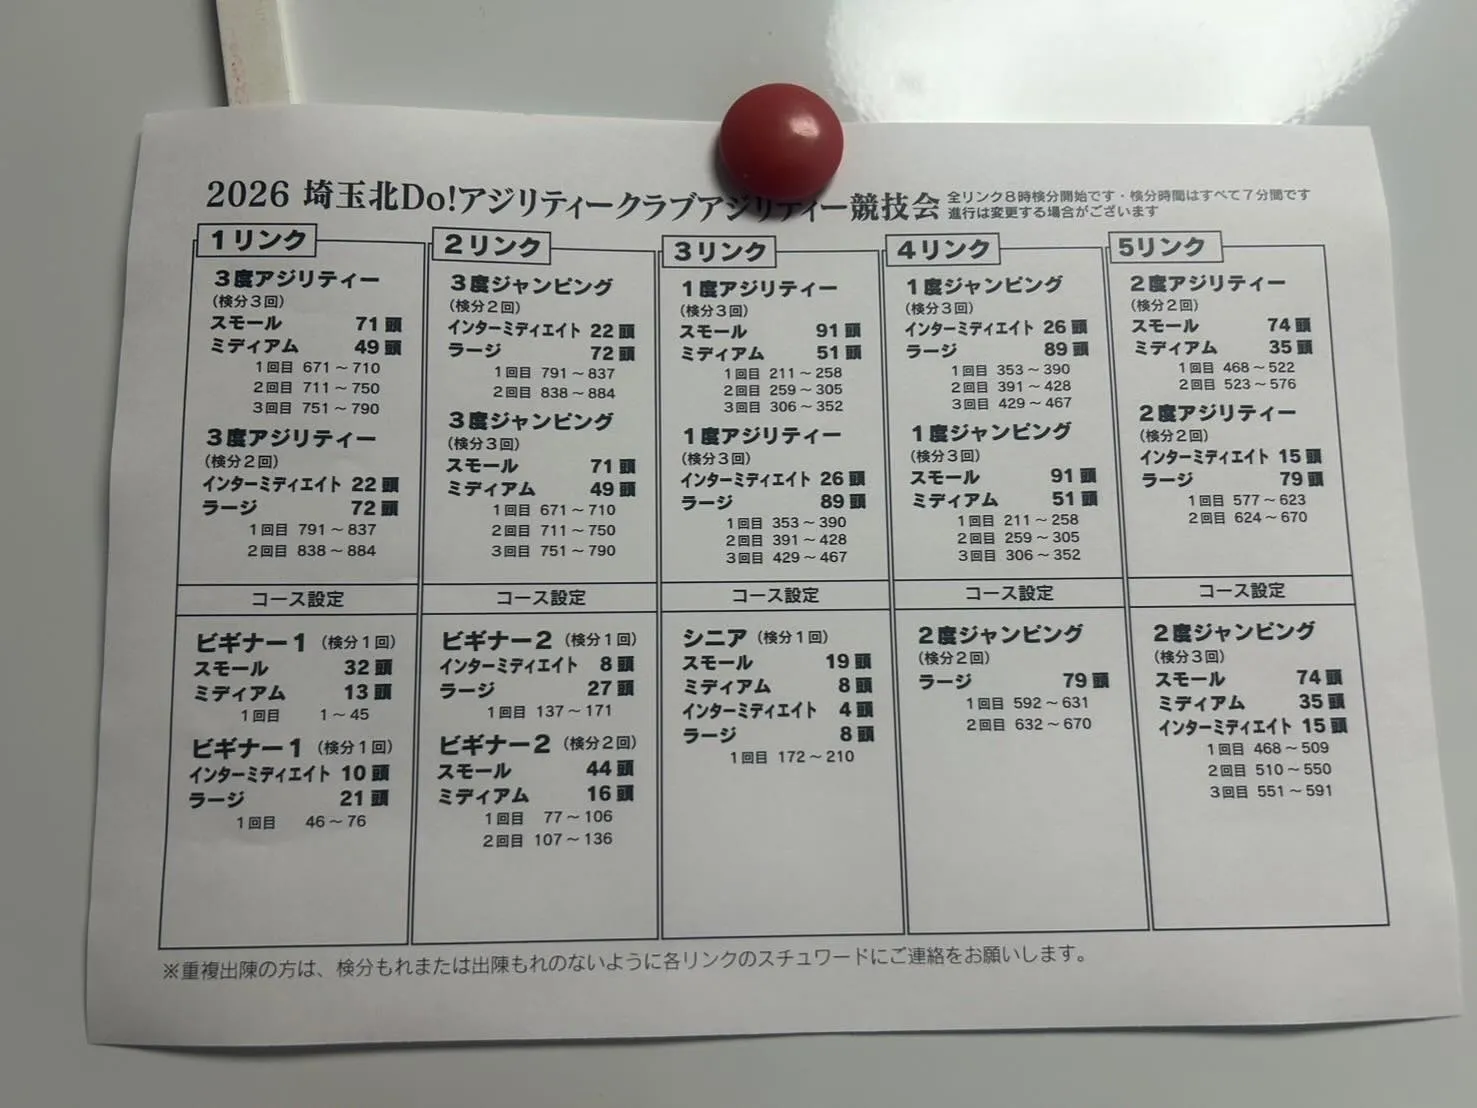 2026 埼玉北Do!アジリティークラブアジリティー競技会
全リンク8時検分開始です・検分時間はすべて7分間です
進行は変更する場合がございます
1リンク
3度アジリティー
(検分3回)
スモール 71頭
ミディアム 49頭
1回目 671〜710
2回目 711〜750
3回目 751〜790
3度アジリティー
(検分2回)
インターミディエイト 22頭
ラージ 72頭
1回目 791〜837
2回目 838〜884
コース設定
ビギナー1 (検分1回)
スモール 32頭
ミディアム 13頭
1回目 1〜45
ビギナー1 (検分1回)
インターミディエイト 10頭
ラージ 21頭
1回目 46〜76
2リンク
3度ジャンピング
(検分2回)
インターミディエイト 22頭
ラージ 72頭
1回目 791〜837
2回目 838〜884
3度ジャンピング
(検分3回)
スモール 71頭
ミディアム 49頭
1回目 671〜710
2回目 711〜750
3回目 751〜790
コース設定
ビギナー2 (検分1回)
インターミディエイト 8頭
ラージ 27頭
1回目 137〜171
ビギナー2 (検分2回)
スモール 44頭
ミディアム 16頭
1回目 77〜106
2回目 107〜136
3リンク
1度アジリティー
(検分3回)
スモール 91頭
ミディアム 51頭
1回目 211〜258
2回目 259〜305
3回目 306〜352
1度アジリティー
(検分3回)
インターミディエイト 26頭
ラージ 89頭
1回目 353〜390
2回目 391〜428
3回目 429〜467
コース設定
シニア (検分1回)
スモール 19頭
ミディアム 8頭
インターミディエイト 4頭
ラージ 8頭
1回目 172〜210
4リンク
1度ジャンピング
(検分3回)
インターミディエイト 26頭
ラージ 89頭
1回目 353〜390
2回目 391〜428
3回目 429〜467
1度ジャンピング
(検分3回)
スモール 91頭
ミディアム 51頭
1回目 211〜258
2回目 259〜305
3回目 306〜352
コース設定
2度ジャンピング
(検分2回)
ラージ 79頭
1回目 592〜631
2回目 632〜670
5リンク
2度アジリティー
(検分2回)
スモール 74頭
ミディアム 35頭
1回目 468〜522
2回目 523〜576
2度アジリティー
(検分2回)
インターミディエイト 15頭
ラージ 79頭
1回目 577〜623
2回目 624〜670
コース設定
2度ジャンピング
(検分3回)
スモール 74頭
ミディアム 35頭
インターミディエイト 15頭
1回目 468〜509
2回目 510〜550
3回目 551〜591
※重複出陳の方は、検分もれまたは出陳もれのないように各リンクのスチュワードにご連絡をお願いします。